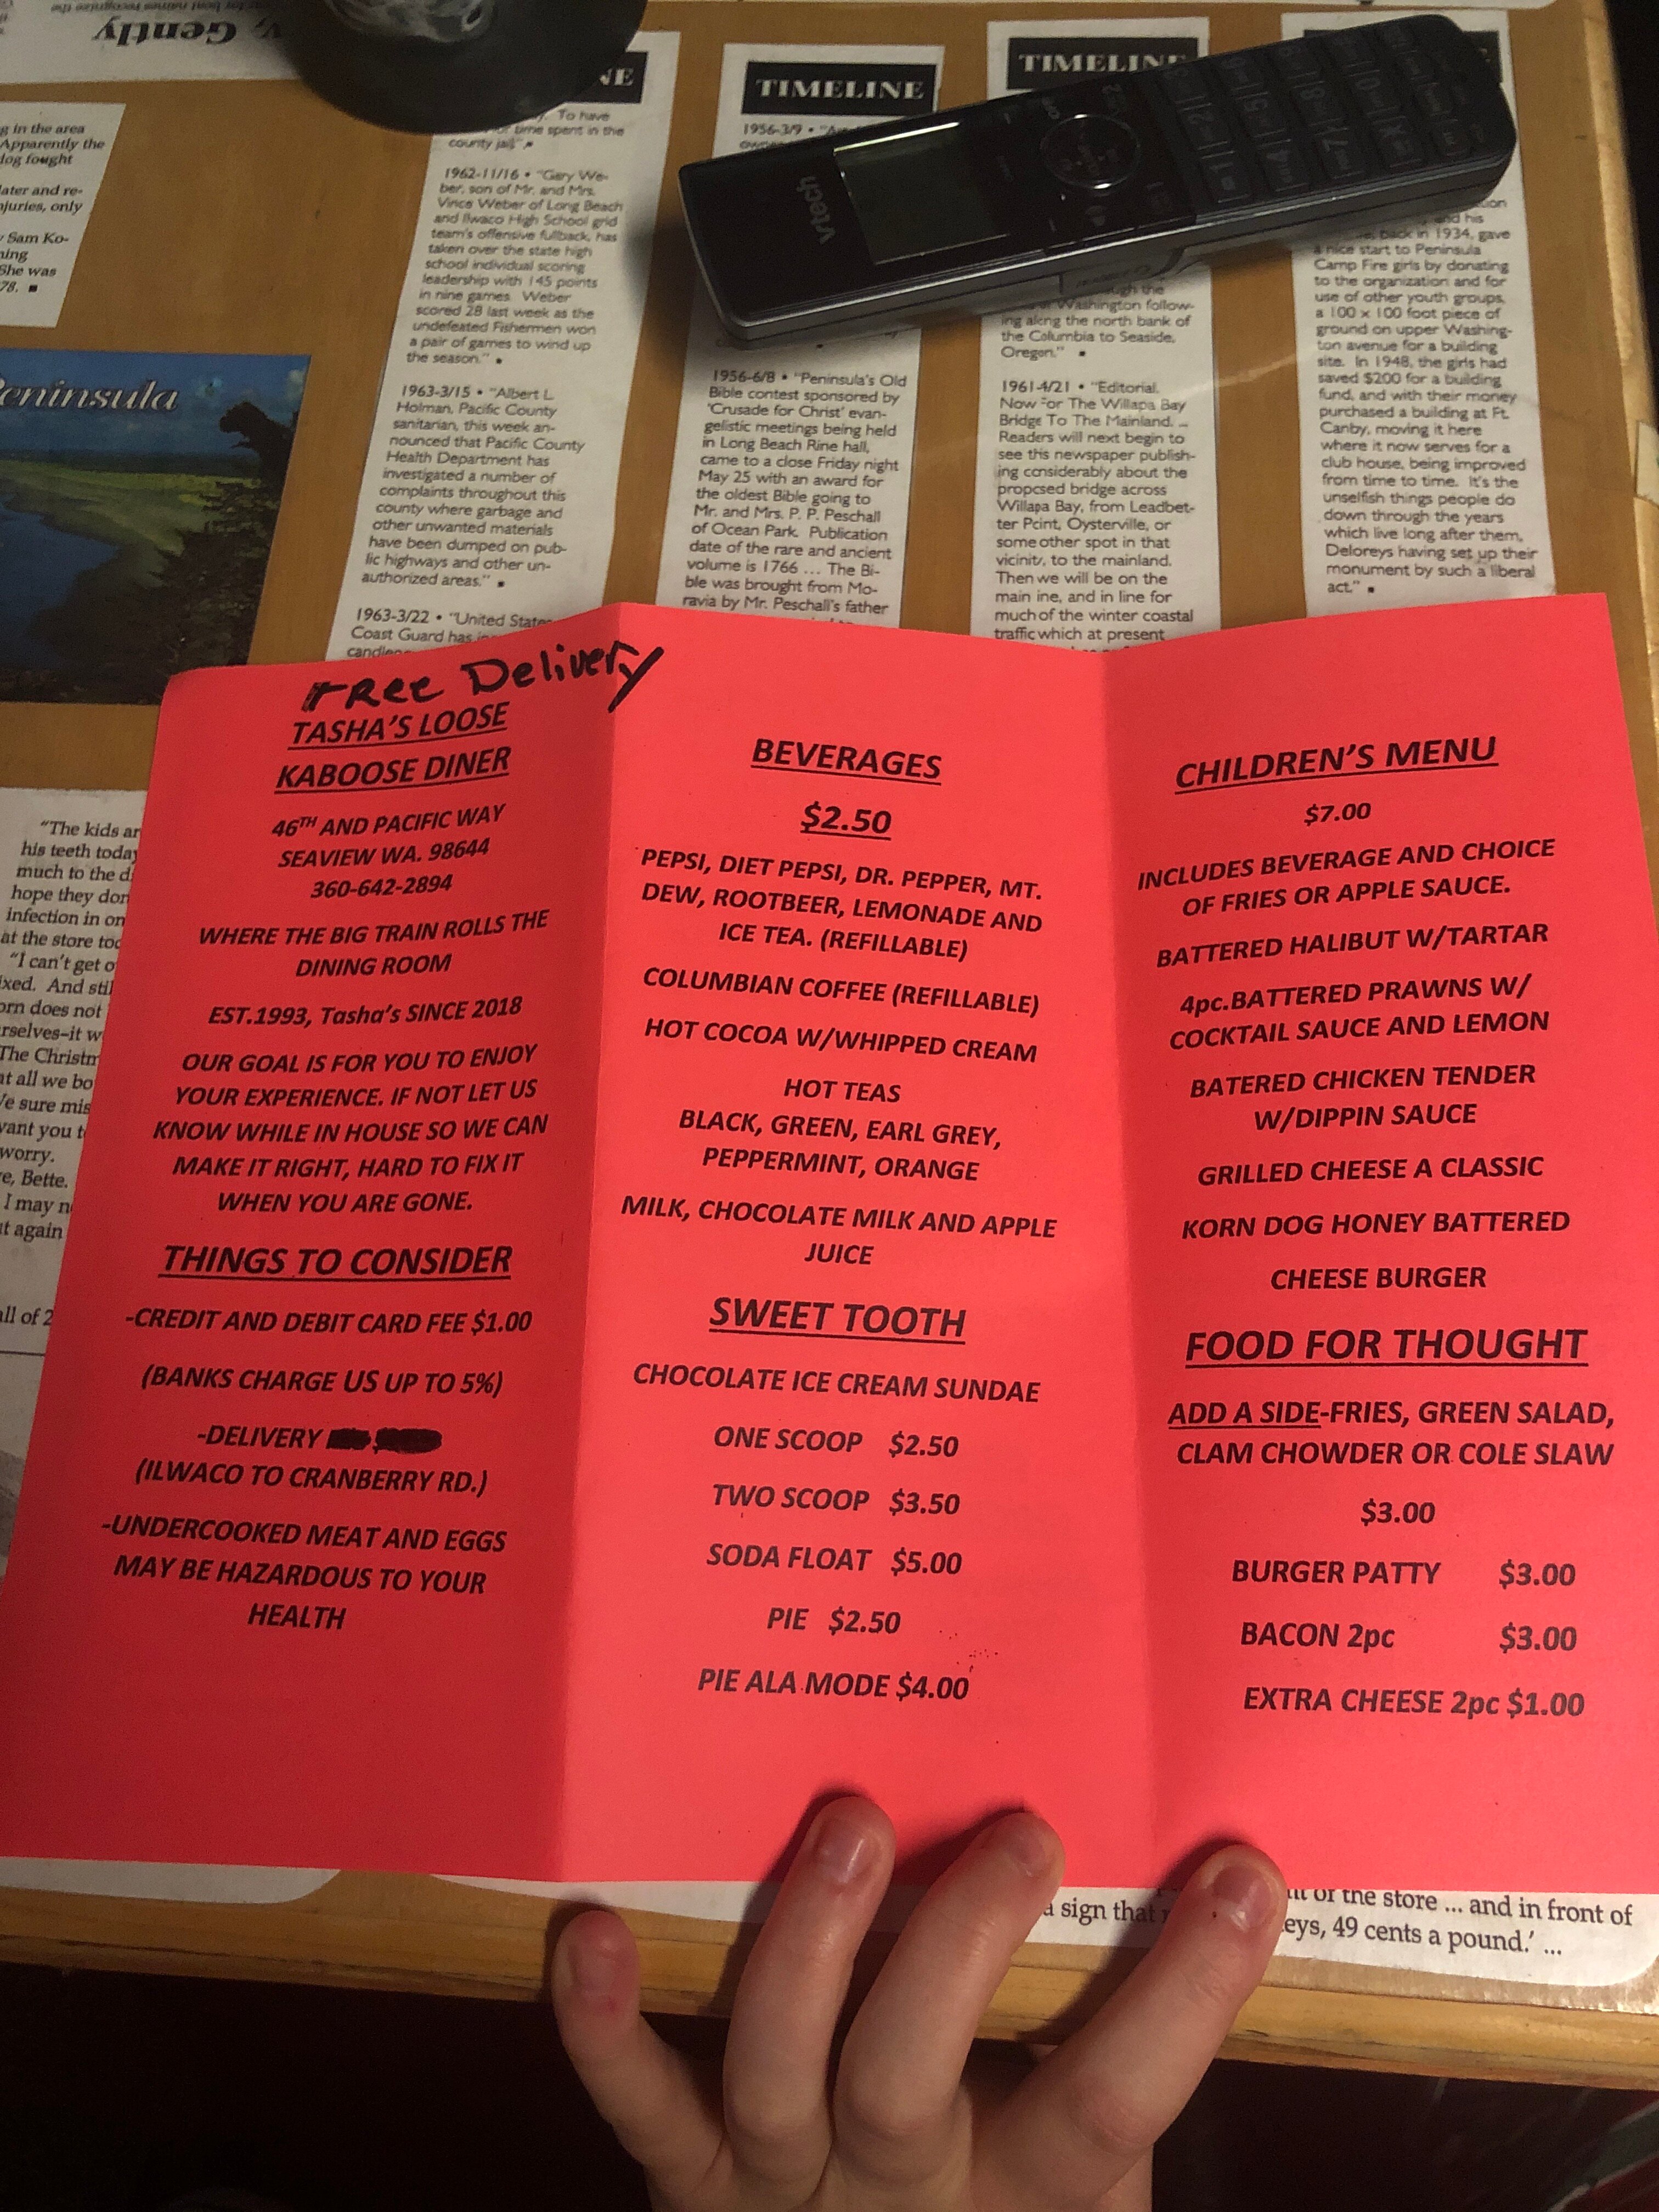 , Gently
NE
To have
time spent in the
county jail." ▪
1962-11/16 • "Gary We-
ber, son of Mr. and Mrs.
Vince Weber of Long Beach
and Ilwaco High School grid
team's offensive fullback, has
taken over the state high
school individual scoring
leadership with 145 points
in nine games. Weber
scored 28 last week as the
undefeated Fishermen won
a pair of games to wind up
the season." ▪
1963-3/15 • "Albert L.
Holman, Pacific County
sanitarian, this week an-
nounced that Pacific County
Health Department has
investigated a number of
complaints throughout this
county where garbage and
other unwanted materials
have been dumped on pub-
lic highways and other un-
authorized areas." ▪
1963-3/22 • "United States
Coast Guard has
TIMELINE
1956-3/9 •
1956-6/8 • "Peninsula's Old
Bible contest sponsored by
'Crusade for Christ' evan-
gelistic meetings being held
in Long Beach Rine hall,
came to a close Friday night
May 25 with an award for
the oldest Bible going to
Mr. and Mrs. P. P. Peschall
of Ocean Park. Publication
date of the rare and ancient
volume is 1766 ... The Bi-
ble was brought from Mo-
ravia by Mr. Peschall's father
TIMELINE
through the
Washington follow-
ing along the north bank of
the Columbia to Seaside,
Oregon." ▪
1961-4/21 • "Editorial.
Now For The Willapa Bay
Bridge To The Mainland. ...
Readers will next begin to
see this newspaper publish-
ing considerably about the
proposed bridge across
Willapa Bay, from Leadbet-
ter Point, Oysterville, or
some other spot in that
vicinity, to the mainland.
Then we will be on the
main line, and in line for
much of the winter coastal
traffic which at present
and his
back in 1934, gave
a nice start to Peninsula
Camp Fire girls by donating
to the organization and for
use of other youth groups,
a 100 x 100 foot piece of
ground on upper Washing-
ton avenue for a building
site. In 1948, the girls had
saved $200 for a building
fund, and with their money
purchased a building at Ft.
Canby, moving it here
where it now serves for a
club house, being improved
from time to time. It's the
unselfish things people do
down through the years
which live long after them,
Deloreys having set up their
monument by such a liberal
act." ▪
vtech
g in the area
Apparently the
dog fought
later and re-
njuries, only
y Sam Ko-
ning
She was
78. ▪
Peninsula
"The kids ar
his teeth today
much to the d
hope they don
infection in on
at the store too
"I can't get o
ixed. And stil
orn does not
rselves–it w
The Christm
at all we bo
We sure mis
want you t
worry.
e, Bette.
I may n
it again
all of 2
FREE Delivery
TASHA'S LOOSE
KABOOSE DINER
46TH AND PACIFIC WAY
SEAVIEW WA. 98644
360-642-2894
WHERE THE BIG TRAIN ROLLS THE
DINING ROOM
EST.1993, Tasha's SINCE 2018
OUR GOAL IS FOR YOU TO ENJOY
YOUR EXPERIENCE. IF NOT LET US
KNOW WHILE IN HOUSE SO WE CAN
MAKE IT RIGHT, HARD TO FIX IT
WHEN YOU ARE GONE.
THINGS TO CONSIDER
-CREDIT AND DEBIT CARD FEE $1.00
(BANKS CHARGE US UP TO 5%)
-DELIVERY
(ILWACO TO CRANBERRY RD.)
-UNDERCOOKED MEAT AND EGGS
MAY BE HAZARDOUS TO YOUR
HEALTH
BEVERAGES
$2.50
PEPSI, DIET PEPSI, DR. PEPPER, MT.
DEW, ROOTBEER, LEMONADE AND
ICE TEA. (REFILLABLE)
COLUMBIAN COFFEE (REFILLABLE)
HOT COCOA W/WHIPPED CREAM
HOT TEAS
BLACK, GREEN, EARL GREY,
PEPPERMINT, ORANGE
MILK, CHOCOLATE MILK AND APPLE
JUICE
SWEET TOOTH
CHOCOLATE ICE CREAM SUNDAE
ONE SCOOP $2.50
TWO SCOOP $3.50
SODA FLOAT $5.00
PIE $2.50
PIE ALA MODE $4.00
CHILDREN'S MENU
$7.00
INCLUDES BEVERAGE AND CHOICE
OF FRIES OR APPLE SAUCE.
BATTERED HALIBUT W/TARTAR
4pc.BATTERED PRAWNS W/
COCKTAIL SAUCE AND LEMON
BATERED CHICKEN TENDER
W/DIPPIN SAUCE
GRILLED CHEESE A CLASSIC
KORN DOG HONEY BATTERED
CHEESE BURGER
FOOD FOR THOUGHT
ADD A SIDE-FRIES, GREEN SALAD,
CLAM CHOWDER OR COLE SLAW
$3.00
BURGER PATTY $3.00
BACON 2pc $3.00
EXTRA CHEESE 2pc $1.00
of the store ... and in front of
a sign that
eys, 49 cents a pound.' ...